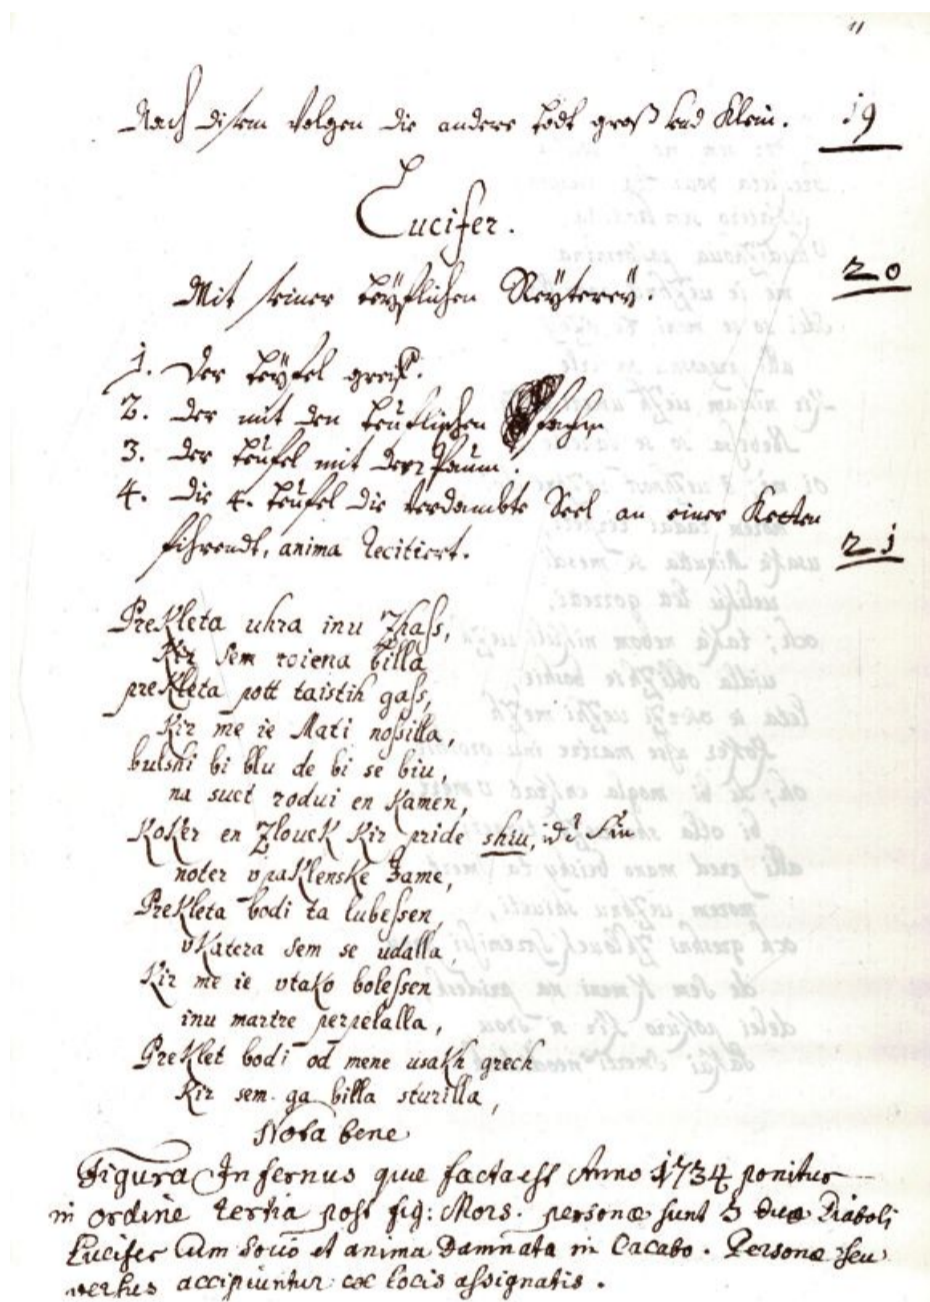 11
Nach disem Volgen die andere todt groß und Klein. 19
Lucifer.
Mit seiner teÿflischen Reÿtereÿ. 20
1. Der teÿfel groß.
2. der mit den teuflischen
3. der teufel mit der
4. die 4. teufel die verdambte Seel an einer Ketten
fihrendt, anima recitiert. 21
Prekleta uhra inu Zhaſs,
Kir sem roiena billa
prekleta pott taistih gaſs,
Kir me ie Mati noſsilla,
bulshi bi blu de bi se biu,
na suet rodui en Kamen,
Koker en Zlouek Kir pride shiu,
noter v paklenske Jame,
Prekleta bodi ta lubeſsen,
vkatera sem se udalla,
Kir me ie vtako boleſsen
inu martre perpelalla,
Preklet bodi od mene usakh grech
Kir sem ga billa sturilla,
Nota bene
Figura Infernus quæ facta est Anno 1734 ponitur
in ordine tertia post fig: Mors. personæ sunt 3 duo Diaboli
Lucifer cum socio et anima Damnata in Cacabo. Personæ seu
versus accipiuntur ex locis aſsignatis.